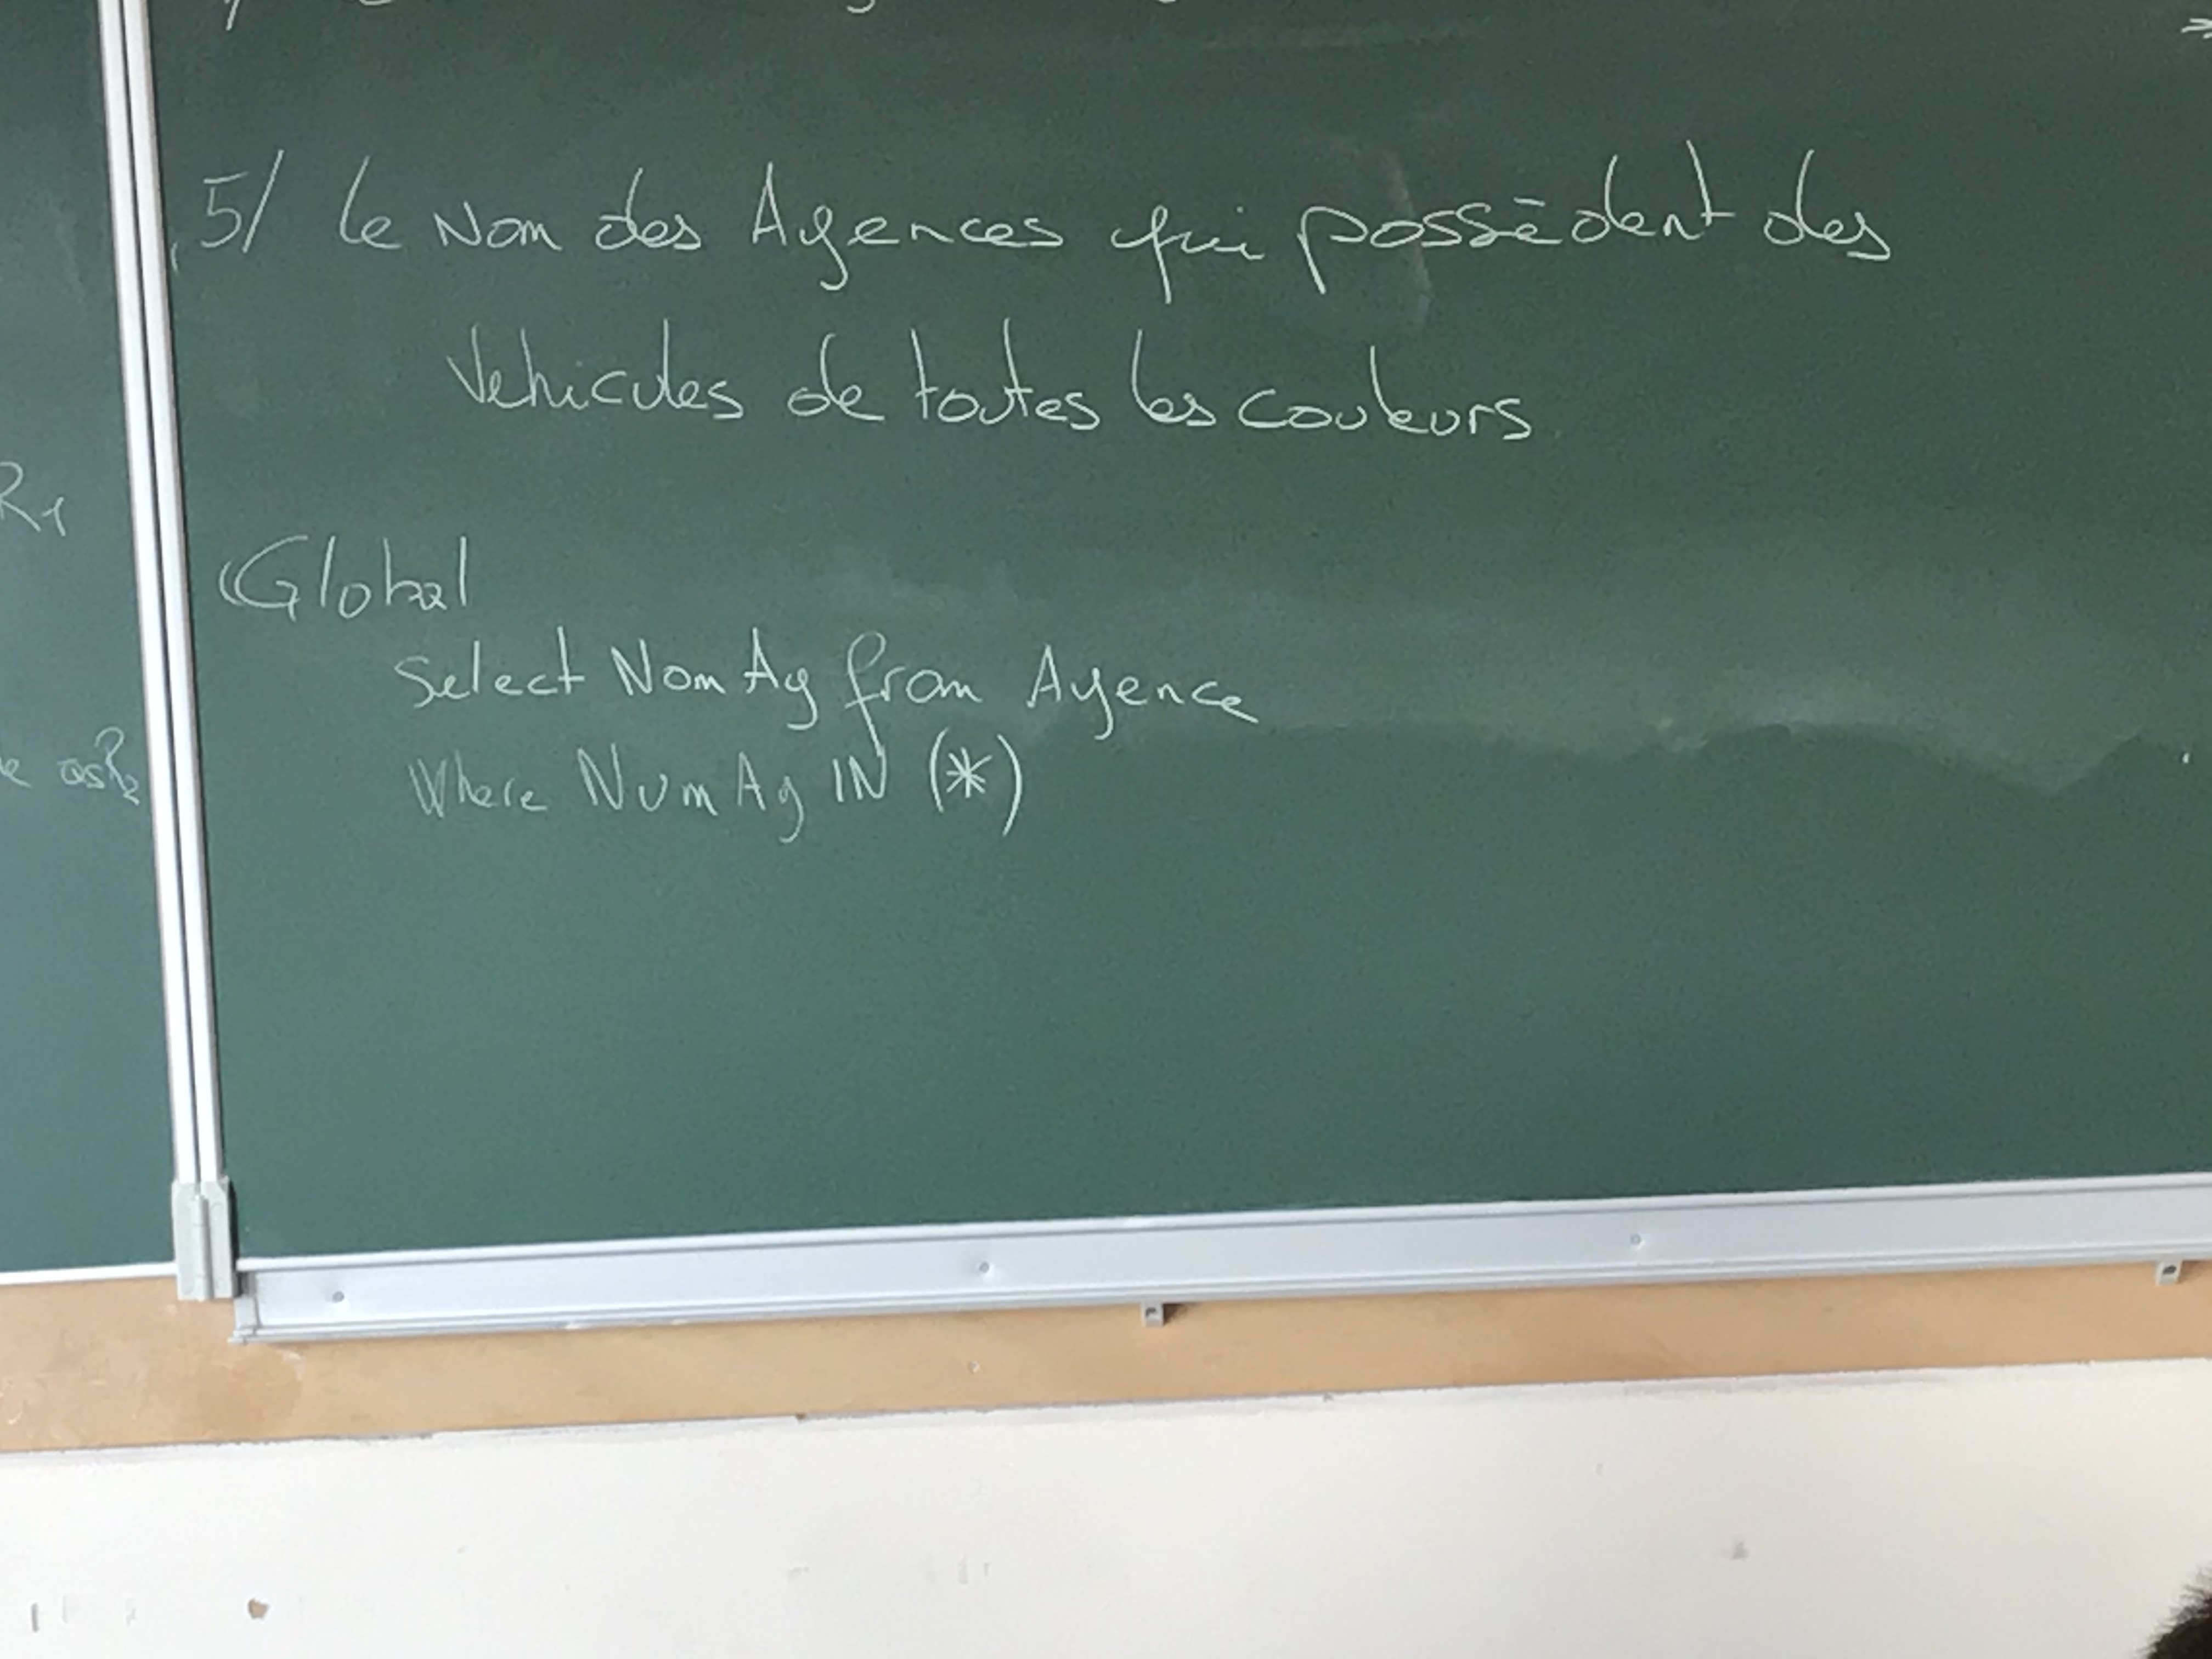 5/ le Nom des Agences qui possèdent des
Vehicules de toutes les couleurs
R1
Global
Select NomAg from Agence
Where NumAg IN (*)